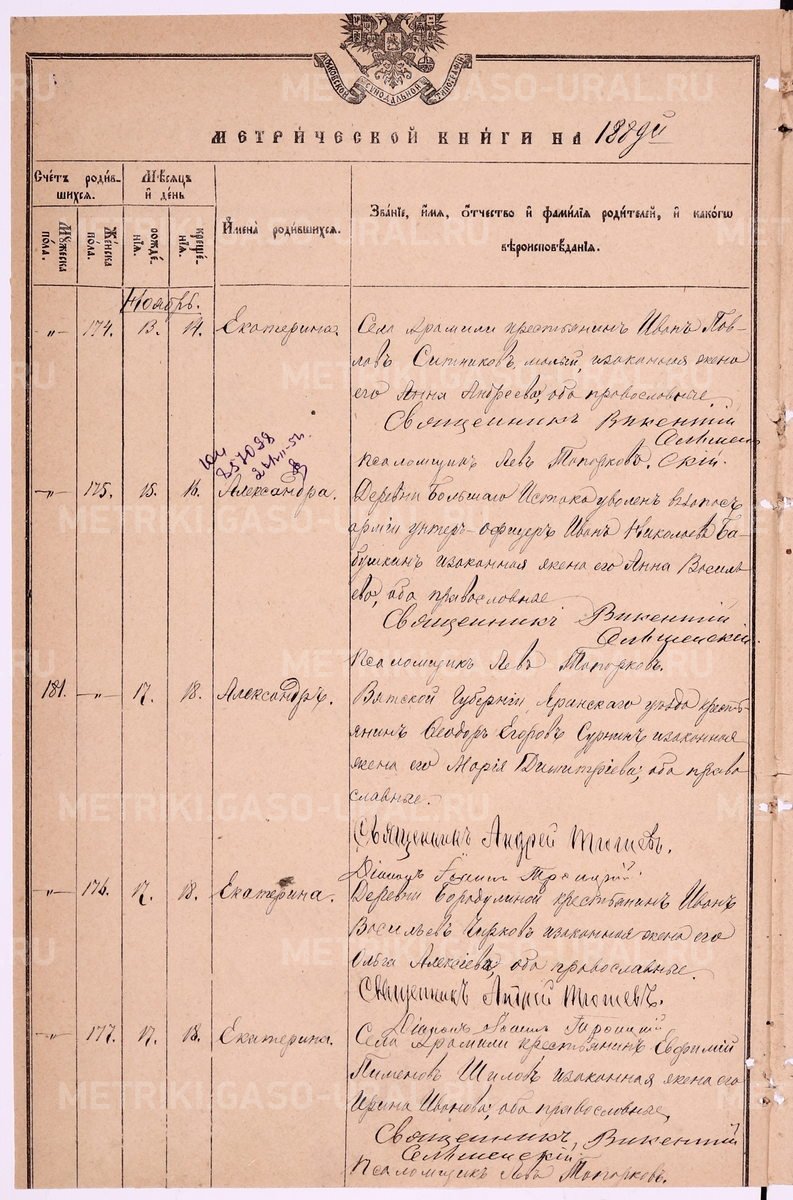 МОСКОВСКОЙ СѴНОДАЛЬНОЙ ТИПОГРАФІИ
МЕТРИ́ЧЕСКОЙ КНИ́ГИ НА 1889й
Сче́тъ роди́вшихся.
Мꙋ́жеска по́ла.
Же́нска по́ла.
Мѣ́сяцъ и де́нь
рожде́нїя.
креще́нїя.
И҆мена̀ роди́вшихся.
Зва́нїе, и҆́мя, ѻ҆́тчество и҆ фами́лїя роди́телей, и҆ како́гѡ
вѣроисповѣ́данїя.
Ноябрь.
-„- 174. 13. 14. Екатерина. Села Арамили крестьянинъ Иванъ Пав-
ловъ Ситниковъ малый, и законная жена
его Анна Андреева; оба православные
Священникъ Викентій
Селменскій.
Псаломщикъ Левъ Топорковъ.
257098
-„- 175. 15. 16. Александра. Деревни Большаго Истока уволен. в запасъ
арміи унтеръ-офицеръ Иванъ Николаевъ Ба-
бушкинъ и законная жена его Анна Василь-
ева, оба православные
Священникъ Викентій
Селменскій.
Псаломщикъ Левъ Топорковъ.
181. -„- 17. 18. Александръ. Вятской Губерніи, Яранскаго уѣзда кресть-
янинъ Ѳеодоръ Егоровъ Суринъ и законная
жена его Марія Димитріева; оба право-
славные.
Священникъ Андрей
Діаконъ Троицкій.
-„- 176. 17. 18. Екатерина. Деревни Бородулиной крестьянинъ Иванъ
Васильевъ Чирковъ и законная жена его
Ольга Алексіева, оба православные.
Священникъ Андрей
Діаконъ Троицкій
-„- 177. 17. 18. Екатерина. Села Арамили крестьянинъ Евфимій
Пименовъ Шиловъ и законная жена его
Ирина Иванова; оба православные,
Священникъ, Викентій
Селменскій.
Псаломщикъ Левъ Топорковъ.
METRIKI.GASO-URAL.RU